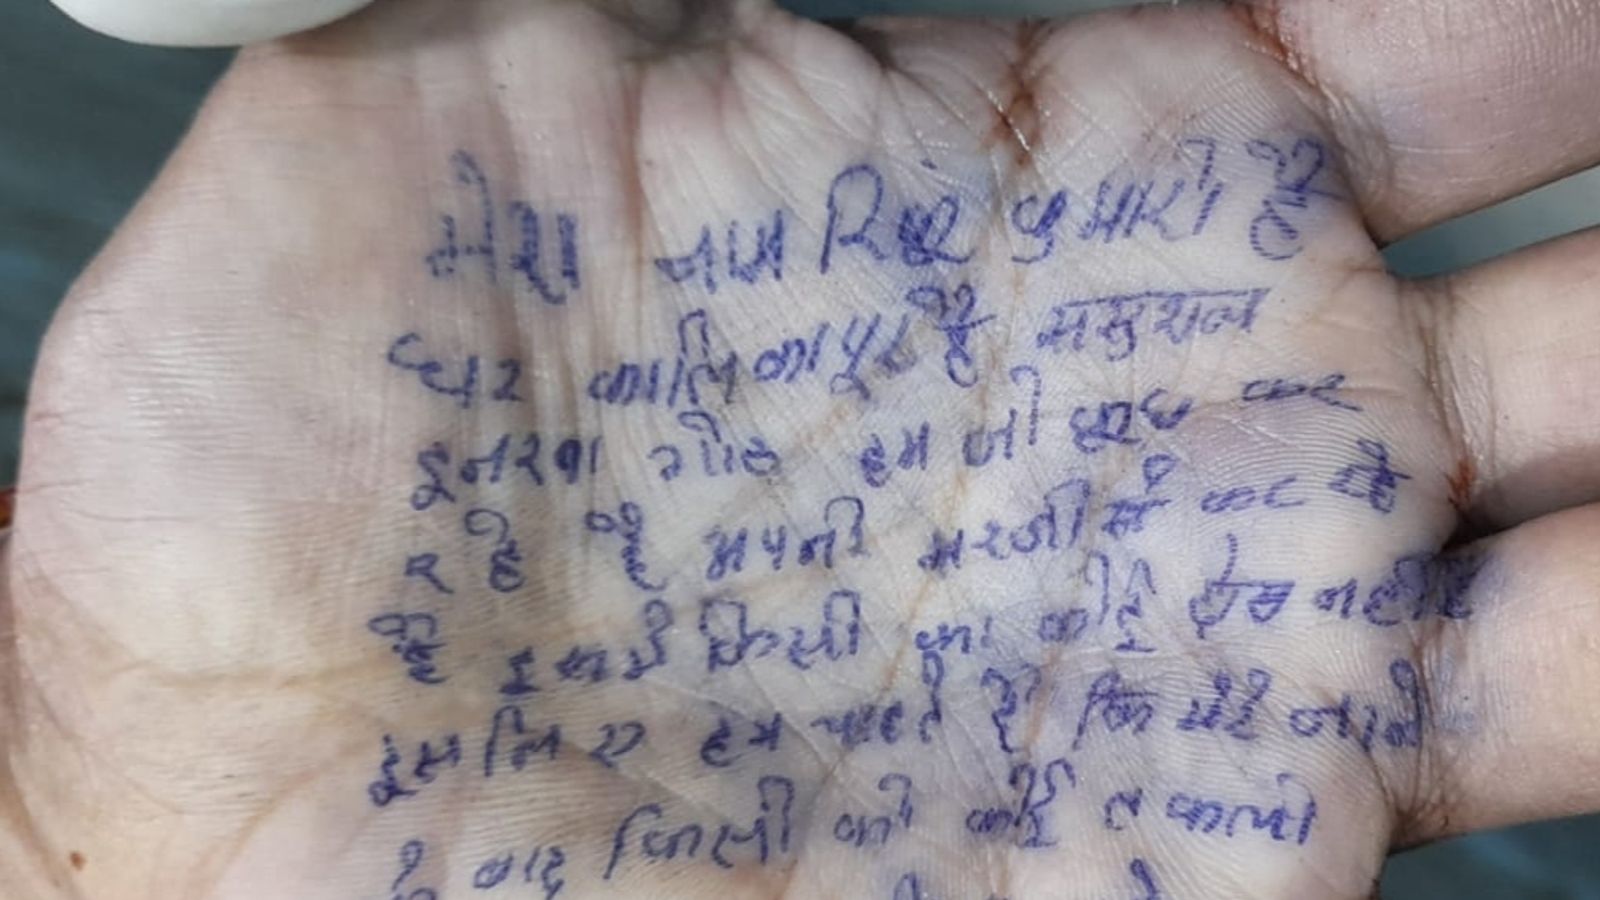 मेरा नाम रिंकू कुमारी है
घर कालिकापुर है ससुराल
इनरवा गोठ हम जो कुछ कर
रहे हैं अपनी मरजी से कर रहे
हैं इसमें किसी का कोई दोस नहीं है
इसलिए हम चाहते हैं कि मेरे जाने
के बाद किसी को कोई तकलो